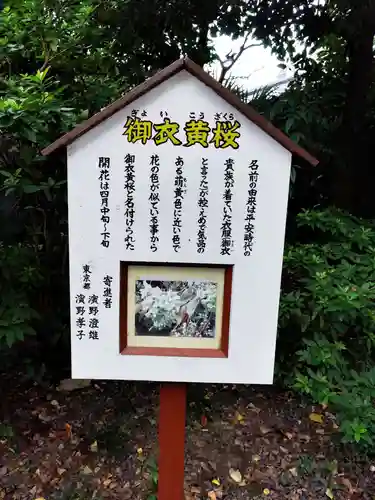 御衣黄桜
ぎょいこうざくら
名前の由来は平安時代の
貴族が着ていた衣服「御衣
と言った」が控えめで気品の
ある萌黄色に近い色で
花の色が似ている事から
御衣黄桜と名付けられた
開花は四月中旬〜下旬
寄進者
東京都 濱野澄雄
濱野孝子